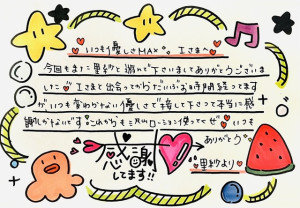 いつも優しさMAX Iさまへ
今回もまた里紗と遊んで下さいましてありがとうございま
した Iさまと出会ってからだいぶお時間経ってます
が いつも変わらない優しさで接して下さって本当に感
謝しかないです これからも ローション使ってぜ いつも
ありがとう
感謝
してます!!
里紗より